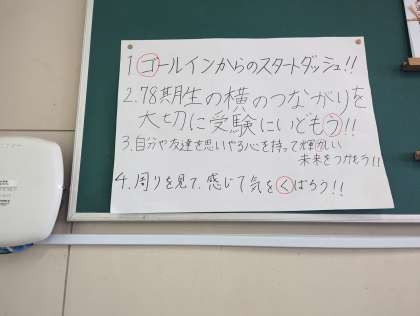 1. ゴールインからのスタートダッシュ!!
2. 78期生の横のつながりを
大切に受験にいどもう!!
3. 自分や友達を思いやる心を持って輝かしい
未来をつかもう!!
4. 周りを見て、感じて気をくばろう!!